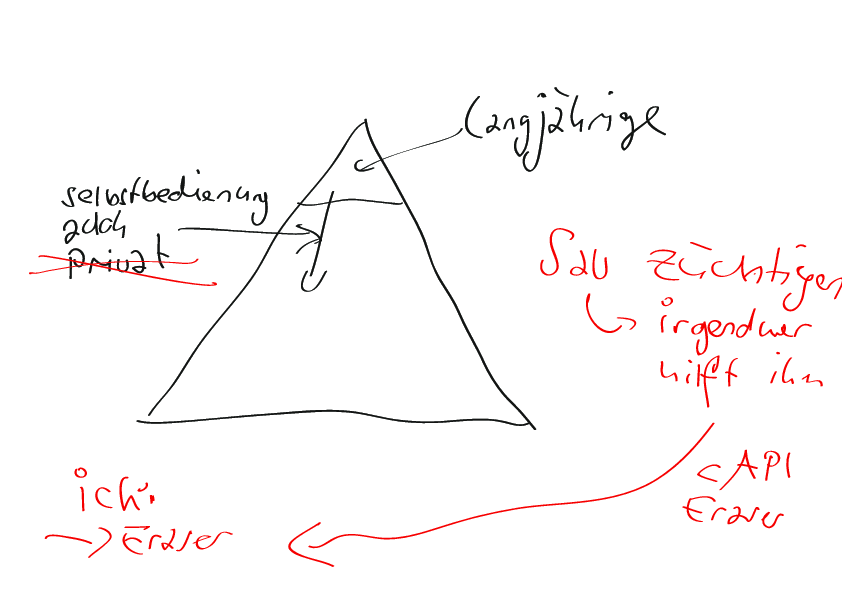 langjährige
selbstbedienung
privat
Sau züchtigen
irgendwer
hilft ihm
API
Eraser
ich:
→ Eraser